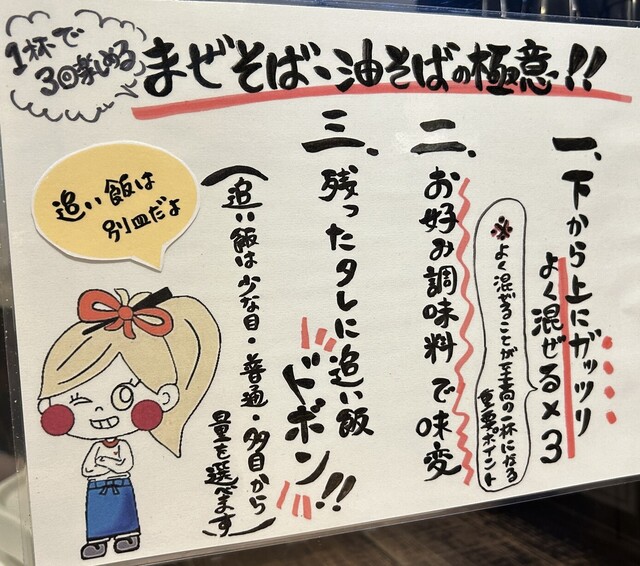 1杯で
3回楽しめる
まぜそば・油そばの極意!!
一、下から上にガッツリ
よく混ぜる×3
※よく混ぜることが至高の一杯になる
重要ポイント
二、お好み調味料で味変
三、残ったタレに追い飯
ドボン!!
(追い飯は少な目・普通・多目から
量を選べます)
追い飯は
別皿だよ